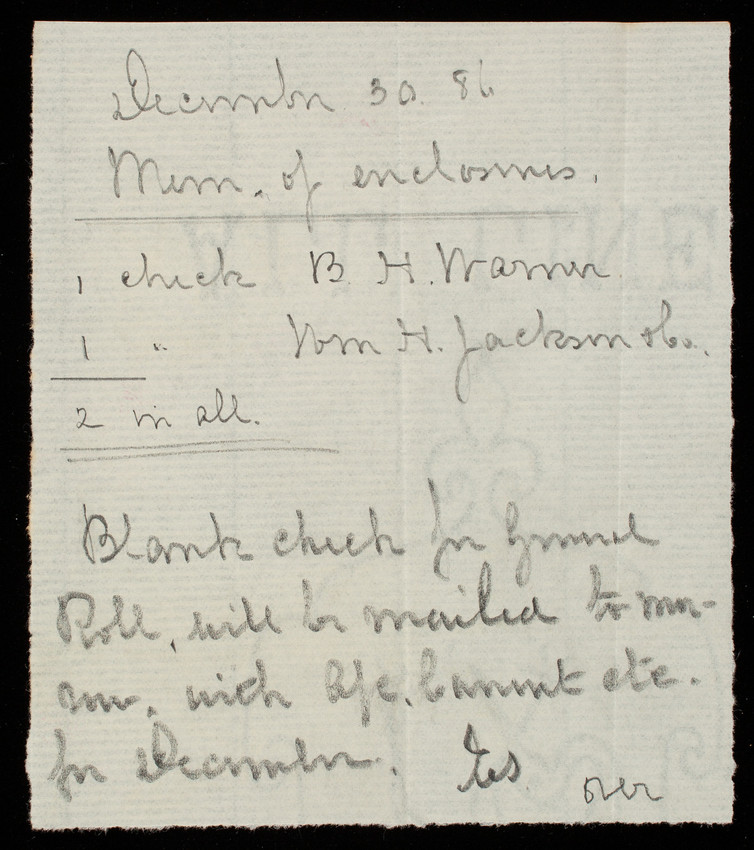 December 30. 86
Mem. of enclosures.
1 check B. H. Warner.
1 " Wm H. Jackson &Co.,
2 in all.
Blank check for General
Roll, will be mailed to mor-
row, with a/c. Current etc.
for December.
over